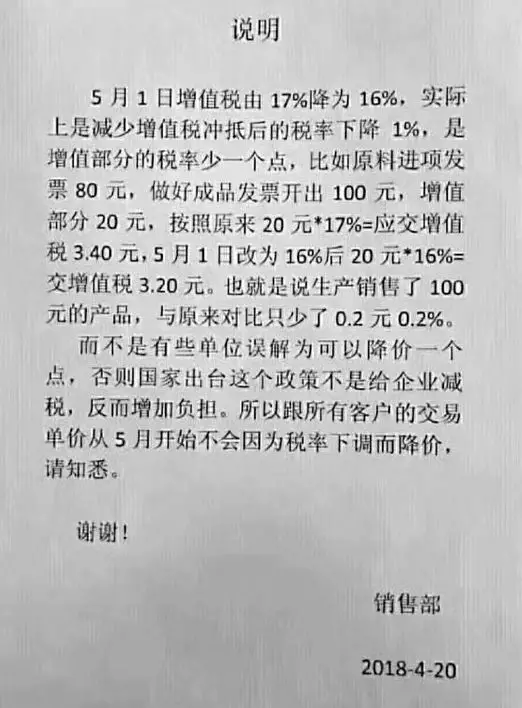 说明
5 月 1 日增值税由 17%降为 16%，实际
上是减少增值税冲抵后的税率下降 1%，是
增值部分的税率少一个点，比如原料进项发
票 80 元，做好成品发票开出 100 元，增值
部分 20 元，按照原来 20 元*17%=应交增值
税 3.40 元，5 月 1 日改为 16%后 20 元*16%=
交增值税 3.20 元。也就是说生产销售了 100
元的产品，与原来对比只少了 0.2 元 0.2%。
而不是有些单位误解为可以降价一个
点，否则国家出台这个政策不是给企业减
税，反而增加负担。所以跟所有客户的交易
单价从 5 月开始不会因为税率下调而降价，
请知悉。
谢谢！
销售部
2018-4-20